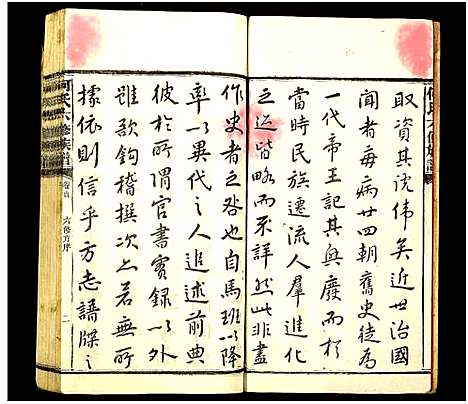 取資其沈偉矣近世治國
聞者每病廿四朝舊史徒為
一代帝王記其興廢而於
當時民族遷流人羣進化
之迹皆略而不詳然此非盡
作史者之咎也自馬班以降
率以異代之人追述前典
彼於所謂官書實錄以外
雖欲鉤稽撰次上若無所
據依則信乎方志譜牒之
何氏六修族譜
卷首
六修方序
二